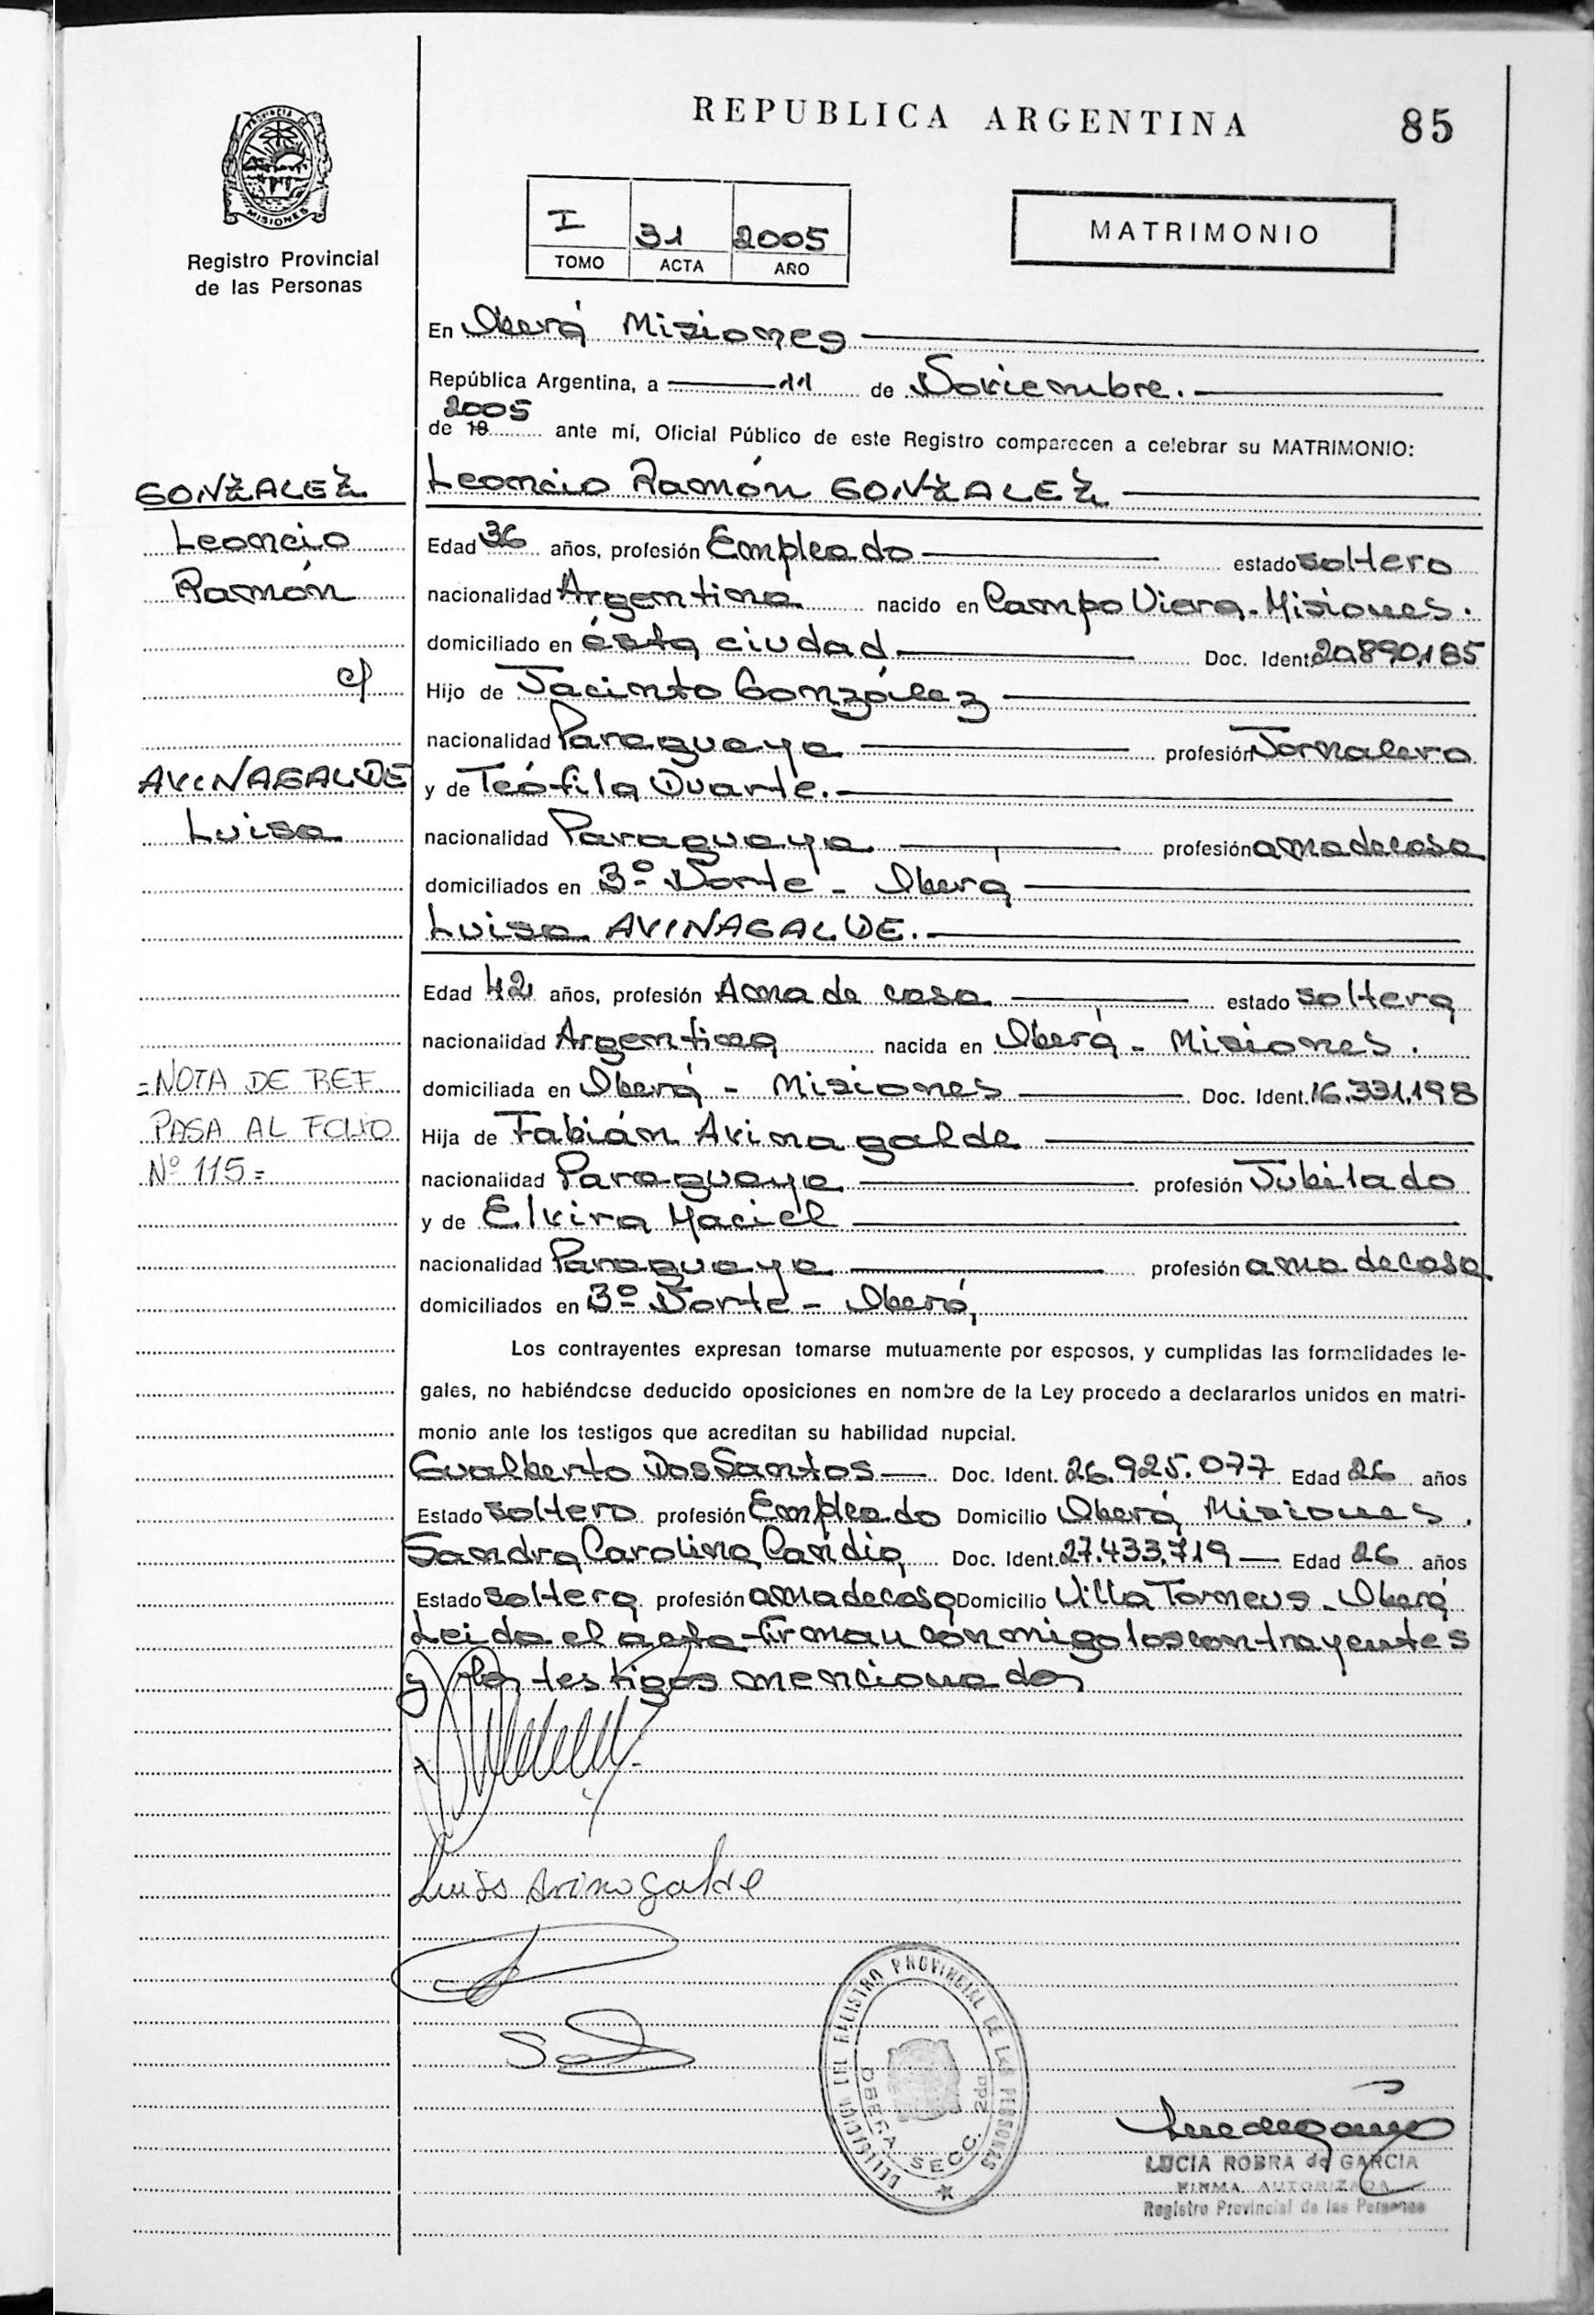 REPUBLICA ARGENTINA
85
PROVINCIA DE
MISIONES
Registro Provincial
de las Personas
I 31 2005
TOMO ACTA AÑO
MATRIMONIO
En Oberá Misiones
República Argentina, a 11 de Noviembre.
2005
de 19 ante mí, Oficial Público de este Registro comparecen a celebrar su MATRIMONIO:
Leoncio Ramón GONZALEZ
Edad 36 años, profesión Empleado estado soltero
nacionalidad Argentina nacido en Campo Viera - Misiones.
domiciliado en ésta ciudad Doc. Ident. 20.890.185
Hijo de Jacinto González
nacionalidad Paraguaya profesión Jornalero
y de Teófila Duarte.
nacionalidad Paraguaya profesión ama de casa
domiciliados en 3º Norte - Oberá
Luisa AVINAGALDE.
Edad 42 años, profesión Ama de casa estado soltera
nacionalidad Argentina nacida en Oberá - Misiones.
domiciliada en Oberá - Misiones Doc. Ident. 16.331.198
Hija de Fabián Avinagalde
nacionalidad Paraguaya profesión Jubilado
y de Elvira Maciel
nacionalidad Paraguaya profesión ama de casa
domiciliados en 3º Norte - Oberá
Los contrayentes expresan tomarse mutuamente por esposos, y cumplidas las formalidades le-
gales, no habiéndose deducido oposiciones en nombre de la Ley procedo a declararlos unidos en matri-
monio ante los testigos que acreditan su habilidad nupcial.
Gualberto Dos Santos Doc. Ident. 26.925.077 Edad 26 años
Estado soltero profesión Empleado Domicilio Oberá Misiones.
Sandra Carolina Candia Doc. Ident. 27.433.719 Edad 26 años
Estado soltera profesión ama de casa Domicilio Villa Torneus - Oberá
Leida el acta firman conmigo los contrayentes
y los testigos mencionados
GONZALEZ
Leoncio
Ramón
c/
AVINAGALDE
Luisa
=NOTA DE REF.
PASA AL FOLIO
Nº 115=
Luisa Avinagalde
DELEGACION DEL REGISTRO PROVINCIAL DE LAS PERSONAS
OBERA SECC. 2da
LUCIA ROBRA de GARCIA
FIRMA AUTORIZADA
Registro Provincial de las Personas